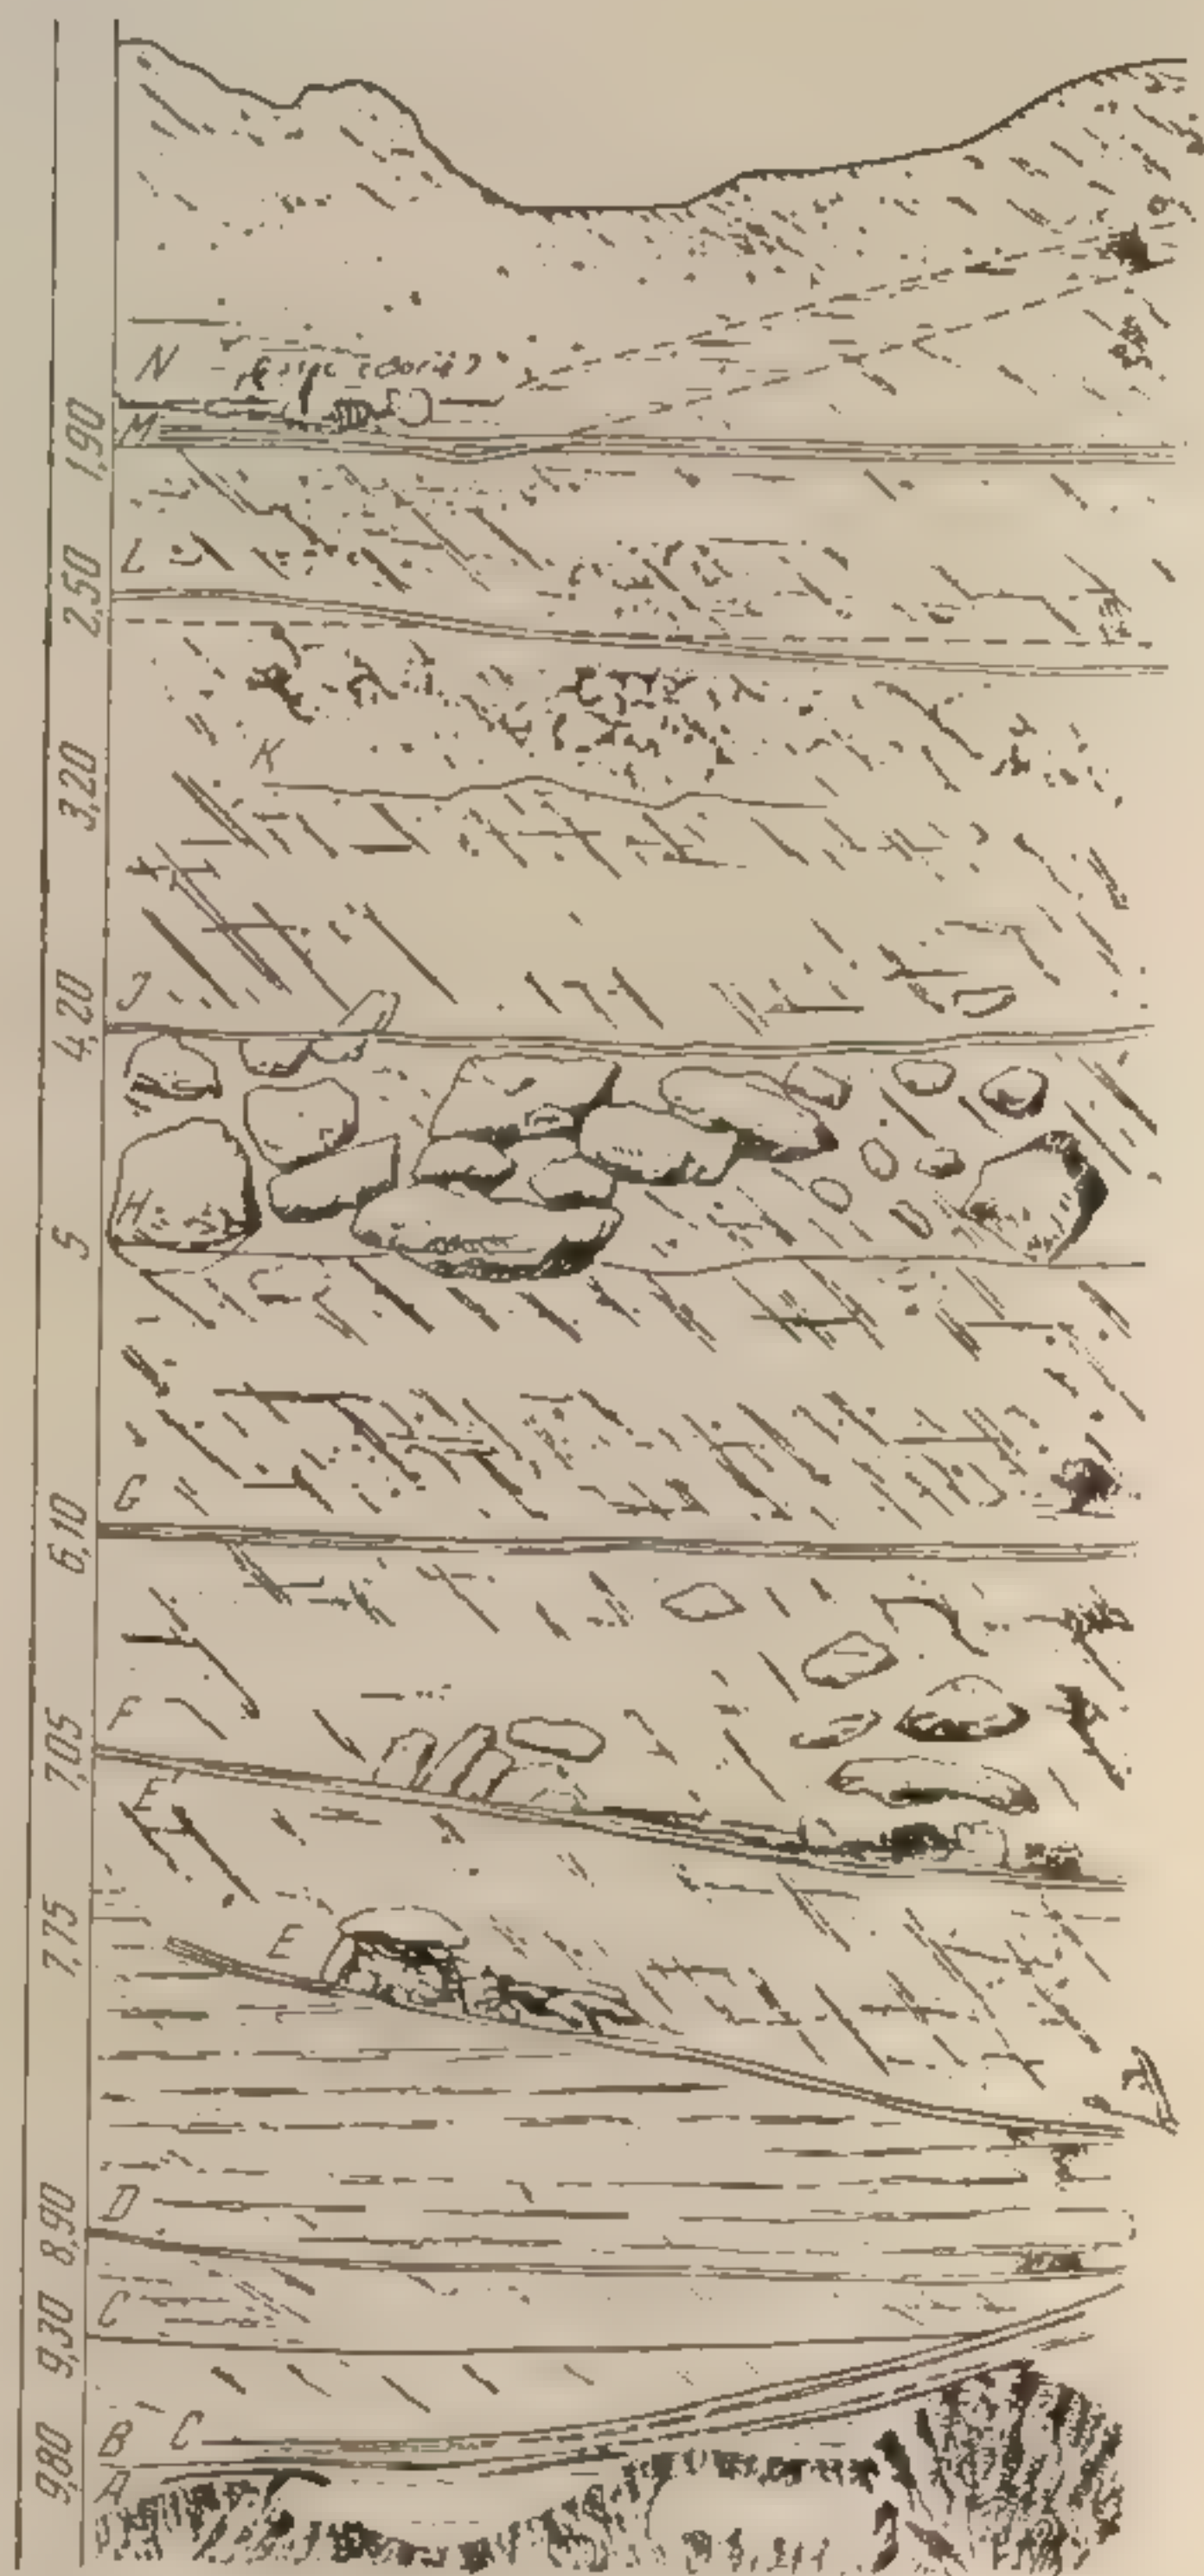 N
M
1,90
L
2,50
K
3,20
J
4,20
H
5
G
6,10
F
7,05
E'
7,75
E
D
8,90
C
9,30
B C
9,80
A